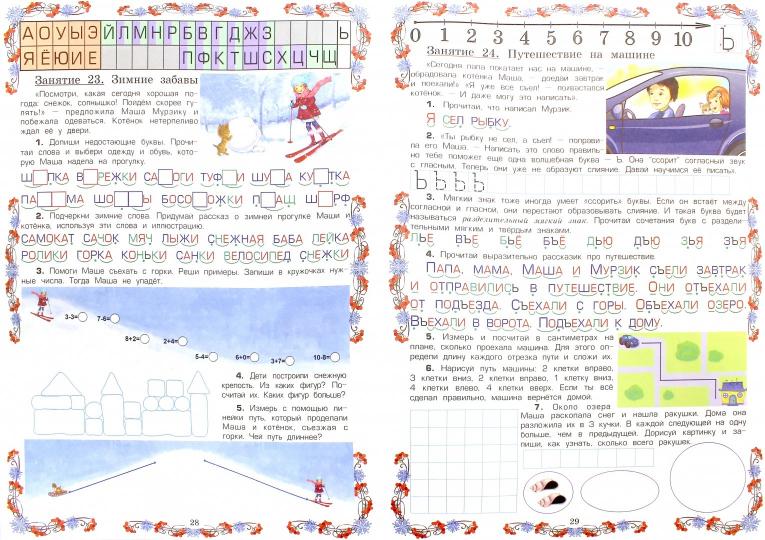 А О У Ы Э Й Л М Н Р Б В Г Д Ж З Ь
Я Ё Ю И Е П Ф К Т Ш С Х Ц Ч Щ
Занятие 23. Зимние забавы
«Посмотри, какая сегодня хорошая по-
года: снежок, солнышко! Пойдём скорее гу-
лять!» — предложила Маша Мурзику и
побежала одеваться. Котёнок нетерпеливо
ждал её у двери.
1. Допиши недостающие буквы. Прочи-
тай слова и выбери одежду и обувь, кото-
рую Маша надела на прогулку.
Ш ПКА В РЕЖКИ СА ОГИ ТУФ И ШУ А КУ ТКА
ПА МА ШО Ы БОСО ОЖКИ П АЩ Ш РФ
2. Подчеркни зимние слова. Придумай рассказ о зимней прогулке Маши и
котёнка, используя эти слова и иллюстрацию.
САМОКАТ САЧОК МЯЧ ЛЫЖИ СНЕЖНАЯ БАБА ЛЕЙКА
РОЛИКИ ГОРКА КОНЬКИ САНКИ ВЕЛОСИПЕД СНЕЖКИ
3. Помоги Маше съехать с горки. Реши примеры. Запиши в кружочках нуж-
ные числа. Тогда Маша не упадёт.
3-3= 7-6=
8+2= 2+4=
5-4= 6+0= 3+7= 10-8=
4. Дети построили снежную
крепость. Из каких фигур? По-
считай их. Каких фигур больше?
5. Измерь с помощью ли-
нейки путь, который проделали
Маша и котёнок, съезжая с
горки. Чей путь длиннее?
28
0 1 2 3 4 5 6 7 8 9 10 Ъ
Занятие 24. Путешествие на машине
«Сегодня папа покатает нас на машине, —
обрадовала котёнка Маша, — доедай завтрак
и поехали!» «Я уже все сьел! — похвастался
котёнок. — И даже могу это написать».
1. Прочитай, что написал Мурзик.
Я СЕЛ РЫБКУ.
2. «Ты рыбку не сел, а съел! — поправи-
ла его Маша. — Написать это слово правиль-
но тебе поможет ещё одна волшебная буква — Ъ. Она "ссорит" согласный звук
с гласным. Теперь они уже не образуют слияние. Давай научимся её писать».
Ъ Ъ Ъ Ъ
3. Мягкий знак тоже иногда умеет «ссорить» буквы. Если он встаёт между
согласной и гласной, они перестают образовывать слияние. И такая буква будет
называться разделительный мягкий знак. Прочитай сочетания букв с раздели-
тельными мягким и твёрдым знаками.
ЛЬЕ ВЪЕ БЬЁ БЪЁ ДЬЮ ДЪЮ ЗЬЯ ЗЪЯ
4. Прочитай выразительно рассказик про путешествие.
ПАПА, МАМА, МАША И МУРЗИК СЪЕЛИ ЗАВТРАК
И ОТПРАВИЛИСЬ В ПУТЕШЕСТВИЕ. ОНИ ОТЪЕХАЛИ
ОТ ПОДЪЕЗДА. СЪЕХАЛИ С ГОРЫ. ОБЪЕХАЛИ ОЗЕРО.
ВЪЕХАЛИ В ВОРОТА. ПОДЪЕХАЛИ К ДОМУ.
5. Измерь и посчитай в сантиметрах на
плане, сколько проехала машина. Для этого оп-
редели длину каждого отрезка пути и сложи их.
6. Нарисуй путь машины: 2 клетки вправо,
3 клетки вниз, 2 клетки вправо, 1 клетку вниз,
4 клетки влево, 4 клетки вверх. Если ты всё
сделал правильно, машина вернётся домой.
7. Около озера
Маша раскопала снег и нашла ракушки. Дома она
разложила их в 3 кучки. В каждой следующей на одну
больше, чем в предыдущей. Дорисуй картинку и за-
пиши, как узнать, сколько всего ракушек.
29